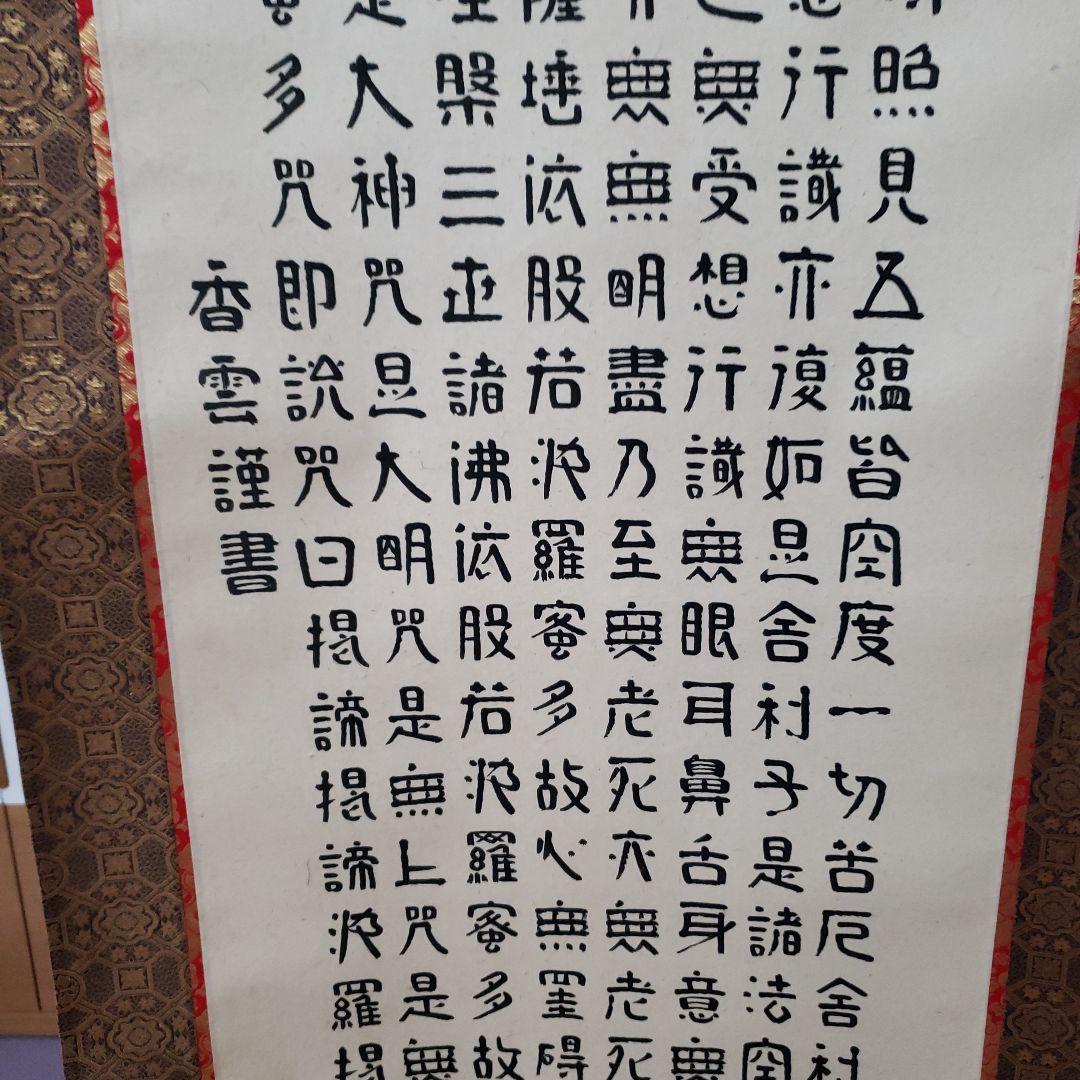 照見五蘊皆空度一切苦厄舍利
行識亦復如是舍利子是諸法空
無受想行識無眼耳鼻舌身意無
亦無無明盡乃至無老死亦無老死
薩埵依般若波羅蜜多故心無罣碍
槃三世諸佛依般若波羅蜜多故
是大神咒是大明咒是無上咒是無
蜜多咒即說咒曰揭諦揭諦波羅揭
香雲謹書